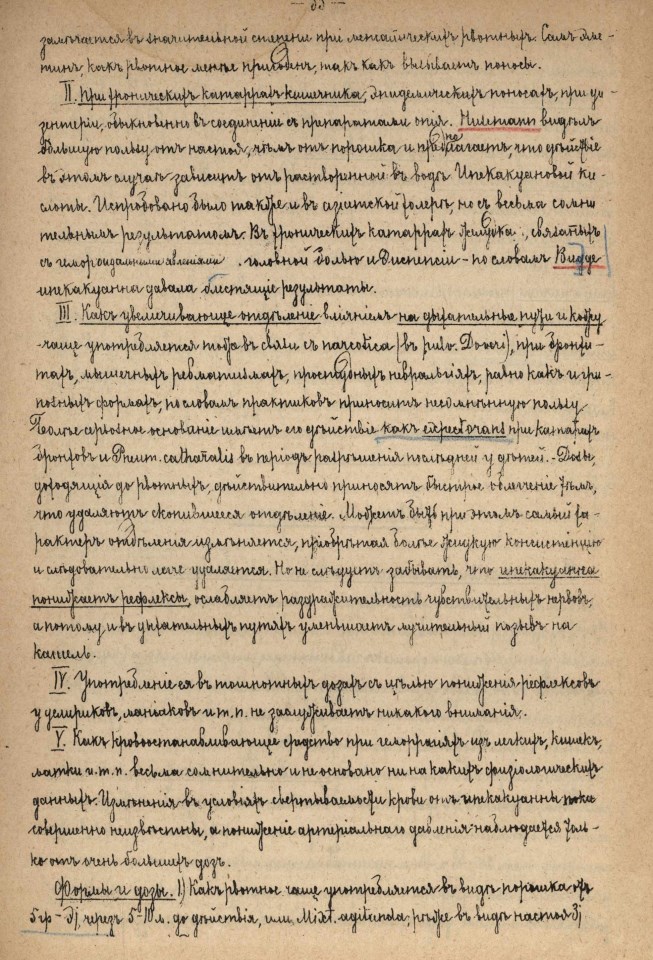 — 33 —
замѣчается въ значительной степени при металлическихъ рвотныхъ. Самъ эме-
тинъ, какъ рвотное менѣе пригоденъ, такъ какъ вызываетъ поносы.
II. При хроническихъ катаррахъ кишечника, эпидемическихъ поносахъ, при ди-
зентеріи, обыкновенно въ соединеніи съ препаратами опія. Husemann видѣлъ
большую пользу отъ настоя, чѣмъ отъ порошка и предполагаетъ, что дѣйствіе
въ этомъ случаѣ зависитъ отъ растворенной въ водѣ Ипекакуановой ки-
слоты. Испробовано было также и въ азіатской холерѣ, но съ весьма сомни-
тельнымъ результатомъ. Въ хроническихъ катаррахъ желудка, связаныхъ
съ гемороидальными явленіями, головной болью и диспепсіи - по словамъ Будде
ипекакуанна давала блестящіе результаты.
III. Какъ увеличивающее отдѣленіе вліяніемъ на дыхательные пути и кожу
- чаще употребляется тоже въ связи съ narcotica (въ pulv. Doveri), при бронхи-
тахъ, мышечныхъ ревматизмахъ, простудныхъ невральгіяхъ, равно какъ и гри-
позныхъ формахъ, по словамъ практиковъ приноситъ несомнѣнную пользу
Болѣе серьозное основаніе имѣетъ его дѣйствіе какъ expectorans при катаррѣ
бронховъ и Pneum. catharralis въ періодъ разрѣшенія послѣдней у дѣтей. - Дозы,
доходящія до рвотныхъ, дѣйствительно приносятъ быстрое облегченіе тѣмъ,
что удаляютъ скопившееся отдѣленіе. Можетъ быть при этомъ самый ха-
рактеръ отдѣленія измѣняется, пріобрѣтая болѣе жидкую консистенцію
и слѣдовательно легче удаляется. Но не слѣдуетъ забывать, что ипекакуанна
понижаетъ рефлексы, ослабляетъ раздражительность чувствительныхъ нервовъ,
а потому и въ дыхательныхъ путяхъ уменьшаетъ мучительный позывъ на
кашель.
IV. Употребленіе ея въ тошнотныхъ дозахъ съ цѣлью пониженія рефлексовъ
у делириковъ, маніаковъ и т. п. не заслуживаетъ никакого вниманія.
V. Какъ кровоостанавливающее средство при геморрагіяхъ изъ легкихъ, кишекъ,
матки и т. п. весьма сомнительно и не основано ни на какихъ физіологическихъ
данныхъ. Измѣненія въ условіяхъ свертываемости крови отъ ипекакуанны пока
совершенно неизвѣстны, а пониженіе артеріальнаго давленія наблюдается толь-
ко отъ очень большихъ дозъ.
Формы и дозы. 1) Какъ рвотное чаще употребляется въ видѣ порошка отъ
5 гр - Эj, черезъ 5-10 м. до дѣйствія, или Mixt. agitanda; рѣже въ видѣ настоя Зj